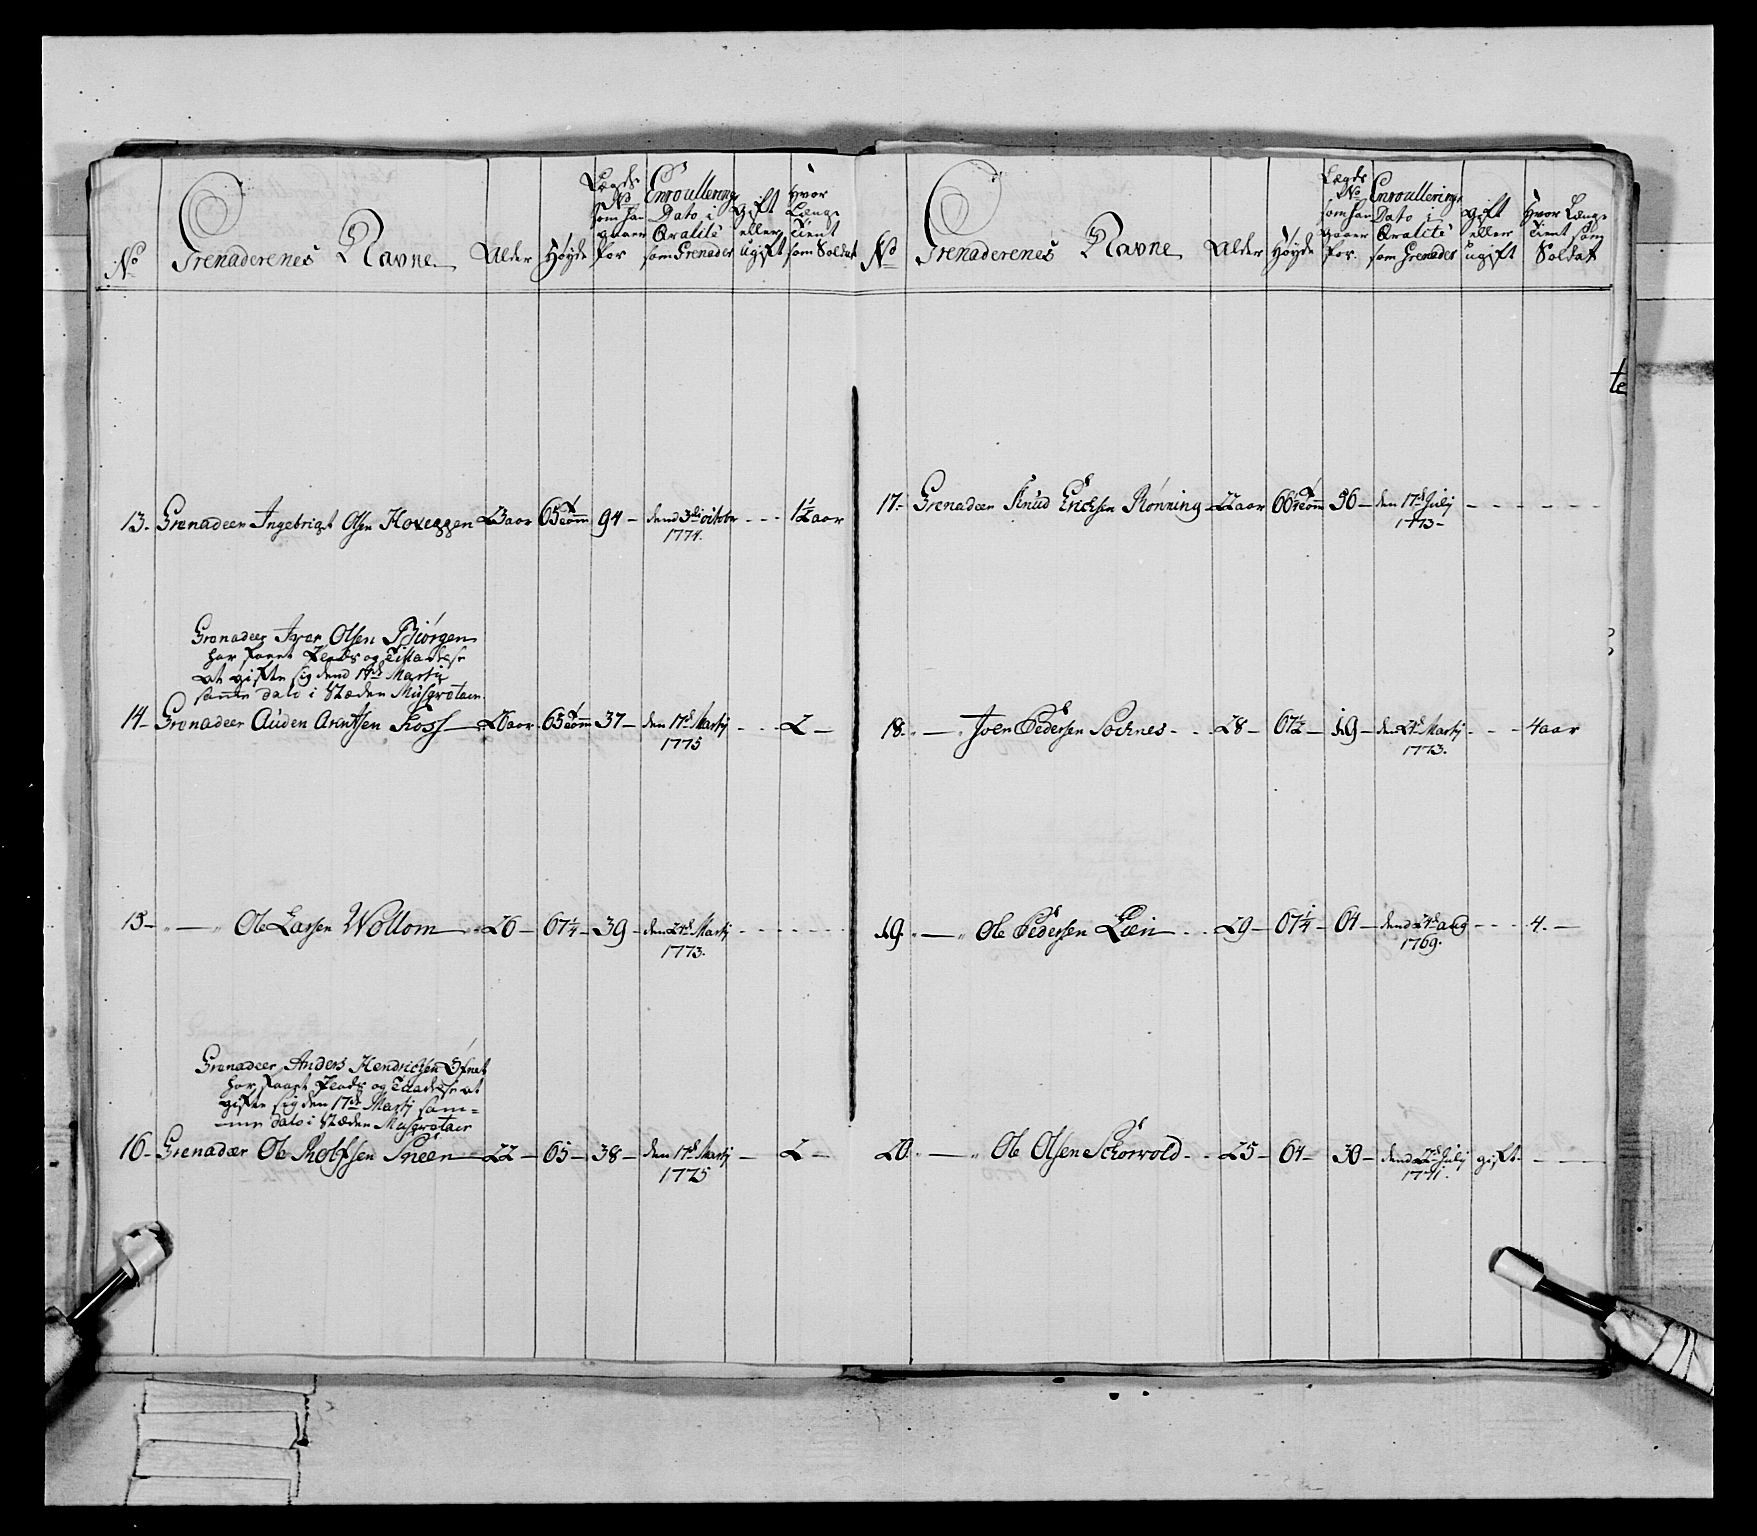 No Grenaderenes Navne Alder Høyde Lægds No som han gaaer for Enroullerings Dato i Qvalité som Grenader gift eller ugift Hvor Længe Tient som Soldat
13. Grenadeer Ingebrigt Olsen Hoveggen 23 aar 65 Tom 94 dend 3de octobr 1774. 1½ aar
Grenadeer Iver Olsen Biörgen
har faaet Pladz og Tilladelse
at gifte sig dend 17de Martij
samme dato i Stæden Musqvetair
14 Grenadeer Auden Arentsen Foss 26 aar 65 Tom 37 den 17de Martij 1775 2
15 Ole Larsen Wollom 26 67¼ 39 den 24de Martij 1773.
Grenadeer Anders Hendrichsen
har faaet Plads og Tilladelse at
gifte sig den 17de Martij sam=
me dato i Stæden Musqvetair
16 Grenadeer Ole Rolfsen Sneen 22 65 38 den 17de Martij 1775 2
No Grenaderenes Navne Alder Høyde Lægds No som han gaaer for. Enroullerings Dato i Qvalité som Grenader gift eller ugift Hvor Længe Tient som Soldat
17. Grenadeer Knud Erichsen Rønning 22 aar 66½ Tom 36 den 17de Julij 1773
18. Joen Pedersen Sochnes 28 67½ 19 den 24de Martij 1773. 4 aar
19. Ole Pedersen Lien 29 67¼ 64 dend 24de aug 1769. 4.
20. Ole Olsen Schorvold 25 64 30 dend 22de Julij 1771. gift
te